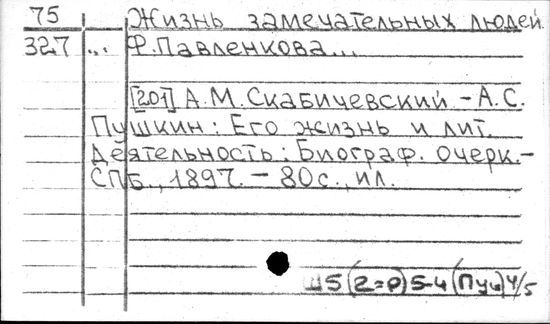 75 Жизнь замечательных людей.
327 ... Ф. Павленкова...
[201] А.М. Скабичевский - А.С.
Пушкин: Его жизнь и лит.
деятельность: Биограф. очерк.-
СПБ., 1897. - 80с., ил.
Ш5(2=Р)5-4(Пуш)4/5